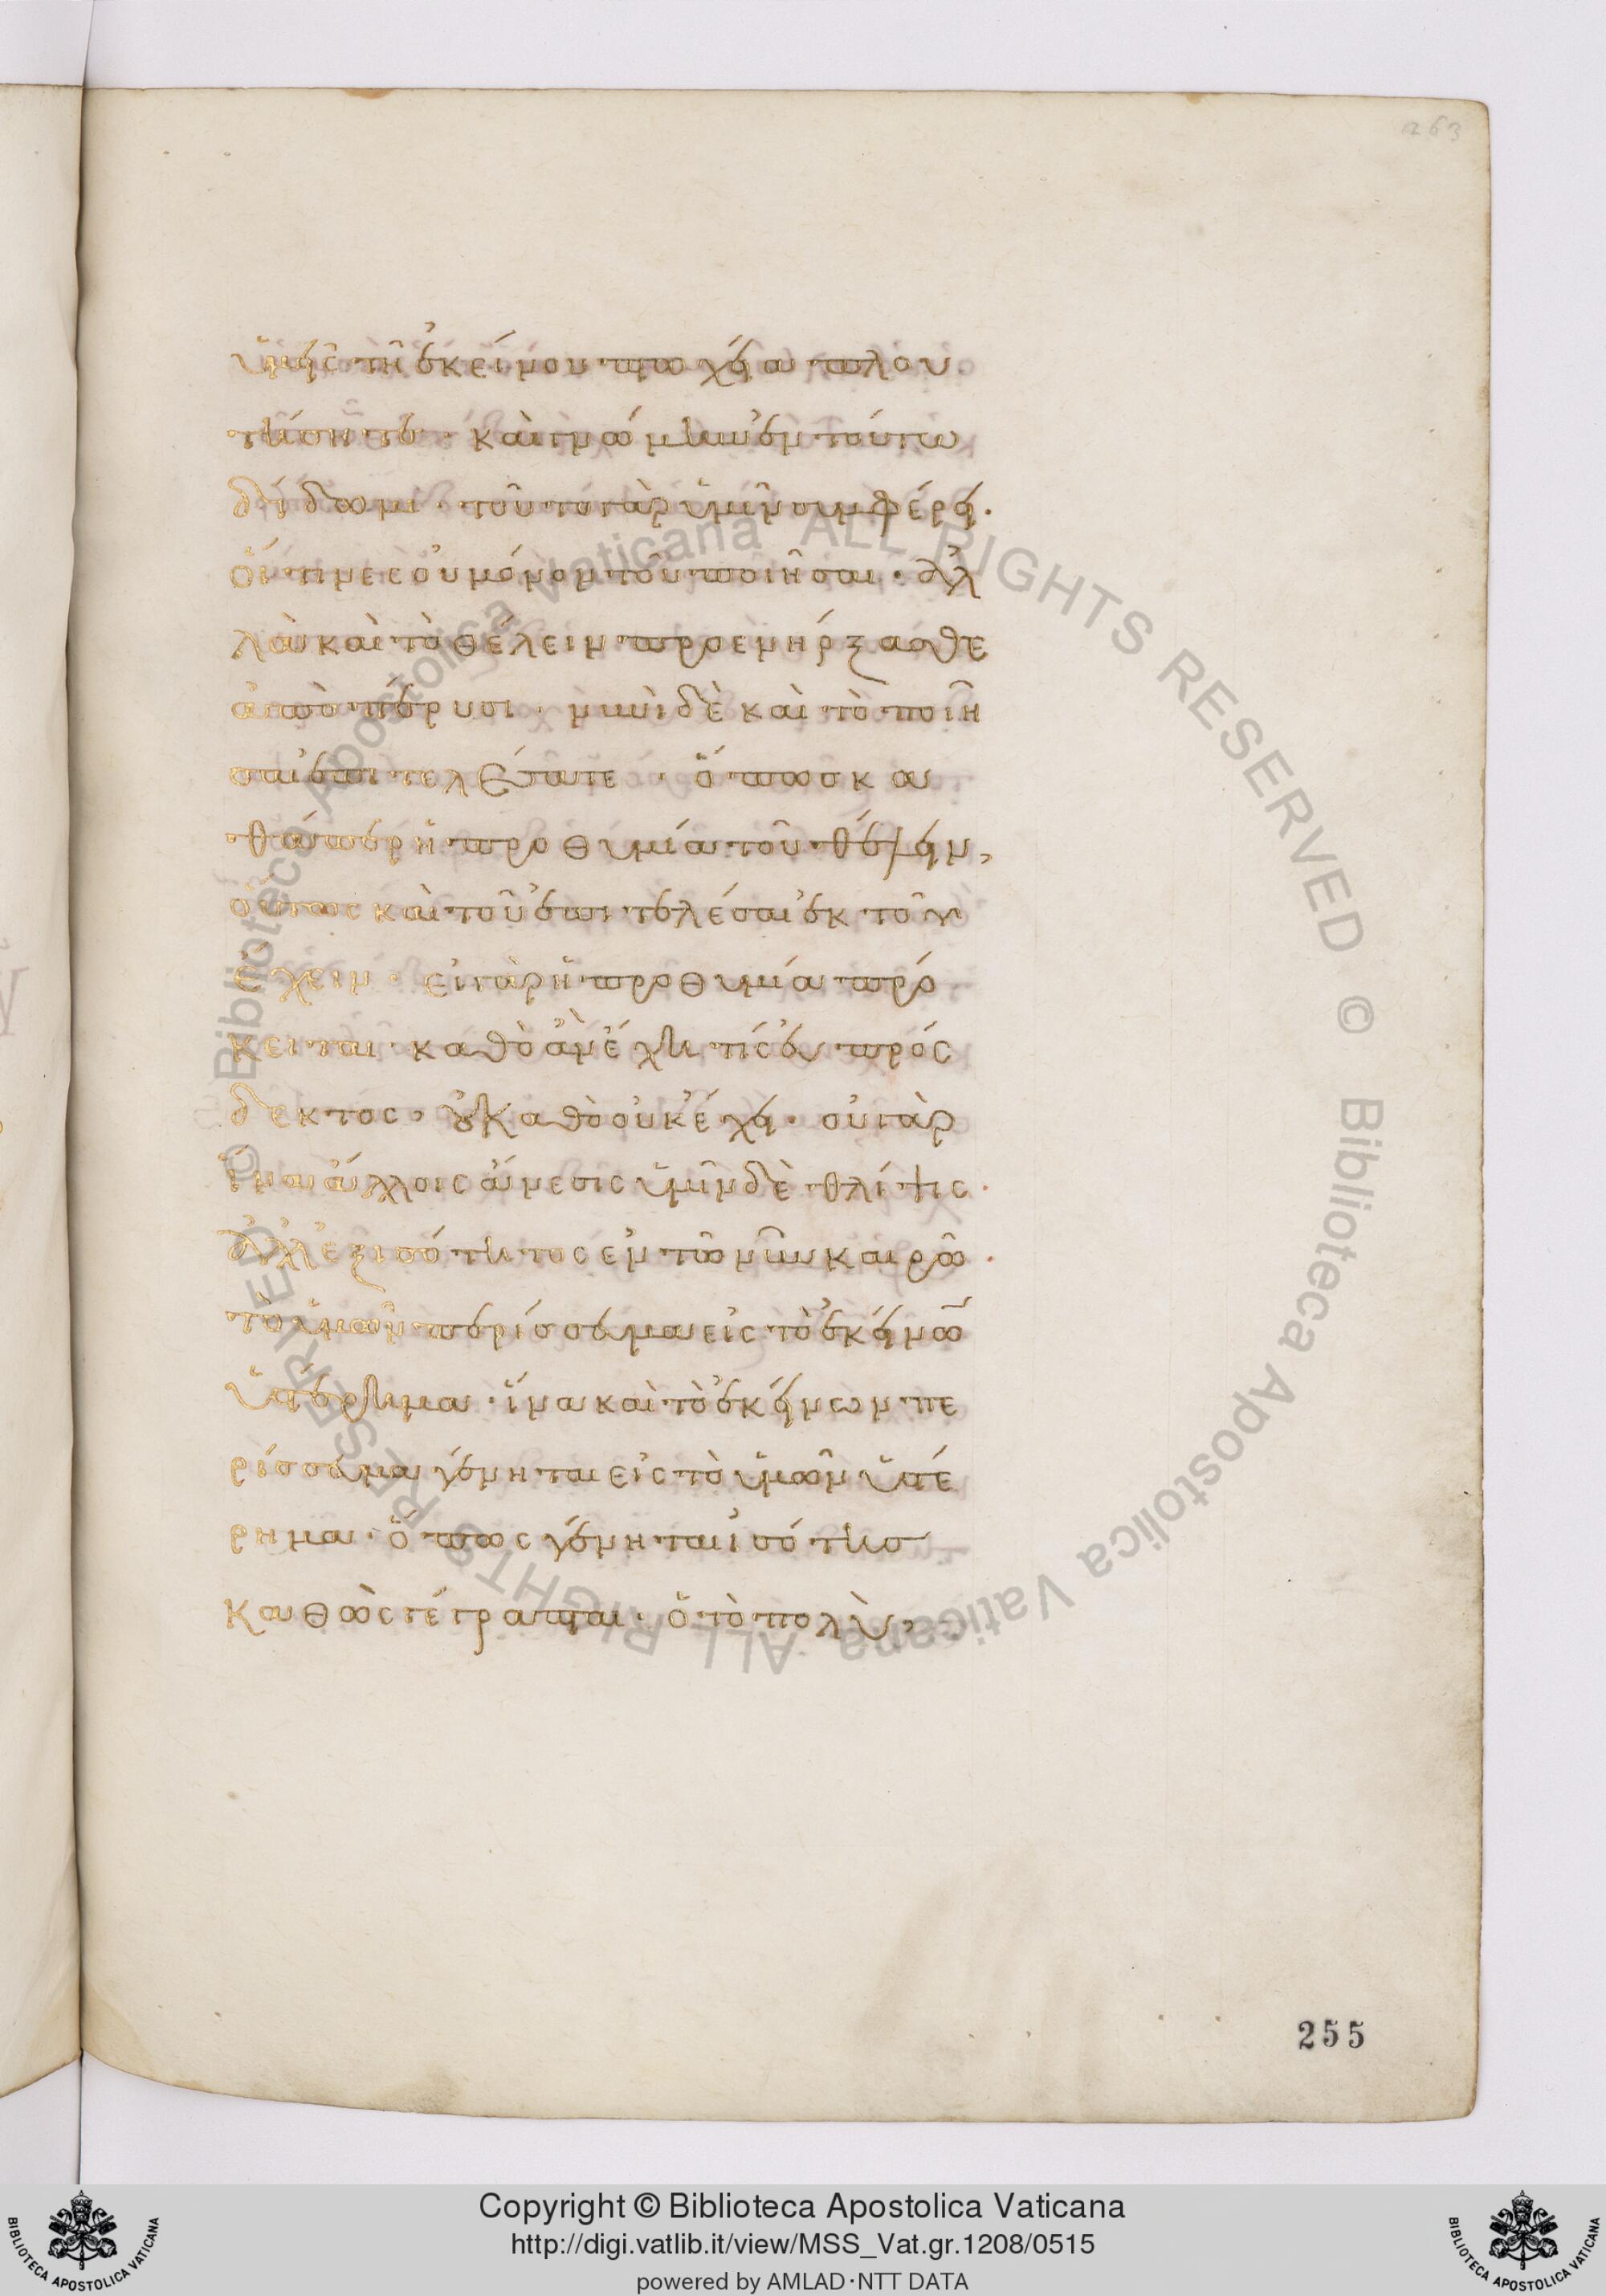 263
ὑμεῖς τῆ ἐκείνου πτωχεία πλου
τήσητε · καὶ γνώμην ἐν τούτω
δίδωμι · τοῦτο γὰρ ὑμῖν συμφέρει ·
οἵτινες οὐ μόνον τοῦ ποιῆσαι · ἀλ
λὰ καὶ τὸ θέλειν προενήρξασθε
ἀπὸ πέρυσι · νυνὶ δὲ καὶ τὸ ποιῆ
σαι ἐπιτελέσατε · ὅπως κα
θάπερ ἡ προθυμία τοῦ θέλειν,
οὕτως καὶ τοῦ ἐπιτελέσαι ἐκ τοῦ
ἔχειν · εἰ γὰρ ἡ προθυμία πρό
κειται · καθὸ ἂν ἔχη τίς εὐπρόσ
δεκτος, οὐ καθὸ οὐκ ἔχει · οὐ γὰρ
ἵνα ἄλλοις ἄνεσις ὑμῖν δὲ θλίψις ·
ἀλλ' ἐξ ἰσότητος ἐν τῶ νῦν καιρῶ ·
τὸ ὑμῶν περίσσευμα εἰς τὸ ἐκείνων
ὑστέρημα · ἵνα καὶ τὸ ἐκείνων πε
ρίσσευμα γένηται εἰς τὸ ὑμῶν ὑστέ
ρημα · ὅπως γένηται ἰσότησ
καθὼς γέγραπται · ὁ τὸ πολὺ,
255
© Biblioteca Apostolica Vaticana ALL RIGHTS RESERVED © Biblioteca Apostolica Vaticana ALL RIGHTS RESERVED
Copyright © Biblioteca Apostolica Vaticana
http://digi.vatlib.it/view/MSS_Vat.gr.1208/0515
powered by AMLAD·NTT DATA
BIBLIOTECA APOSTOLICA VATICANA
BIBLIOTECA APOSTOLICA VATICANA